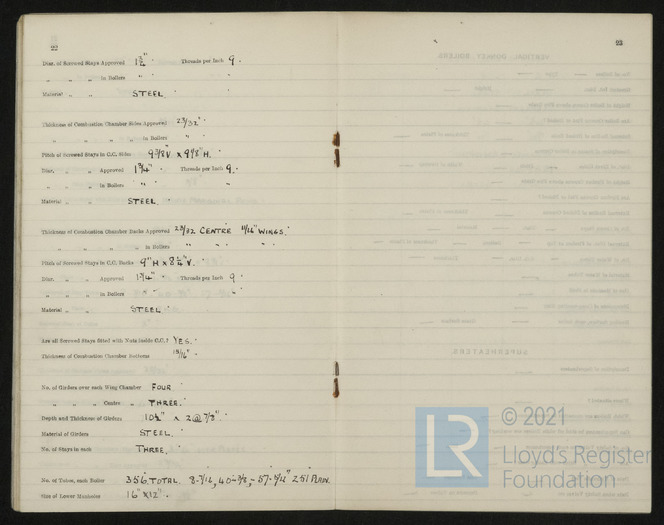 22
Diar. of Screwed Stays Approved 1¾" Threads per Inch 9
" " in Boilers " "
Material " " STEEL.
Thickness of Combustion Chamber Sides Approved 23/32"
" " " in Boilers "
Pitch of Screwed Stays in C.C. Sides 9 3/8 V × 9 7/8" H.
Diar. " " Approved 1¾" Threads per Inch 9.
" " " in Boilers " "
Material " " STEEL.
Thickness of Combustion Chamber Backs Approved 23/32 CENTRE 11/16" WINGS.
" " " in Boilers " " "
Pitch of Screwed Stays in C.C. Backs 9" H × 8¼" V.
Diar. " " Approved 1¾" Threads per Inch 9
" " " in Boilers " "
Material " " STEEL
Are all Screwed Stays fitted with Nuts inside C.C.? YES.
Thickness of Combustion Chamber Bottoms 13/16"
No. of Girders over each Wing Chamber FOUR
" " " Centre " THREE.
Depth and Thickness of Girders 10½" × 2 @ 7/8".
Material of Girders STEEL.
No. of Stays in each THREE.
No. of Tubes, each Boiler 356 TOTAL. 251 PLAIN.
Size of Lower Manholes 16" × 12"
23
© 2021
LR
Lloyd's Register
Foundation